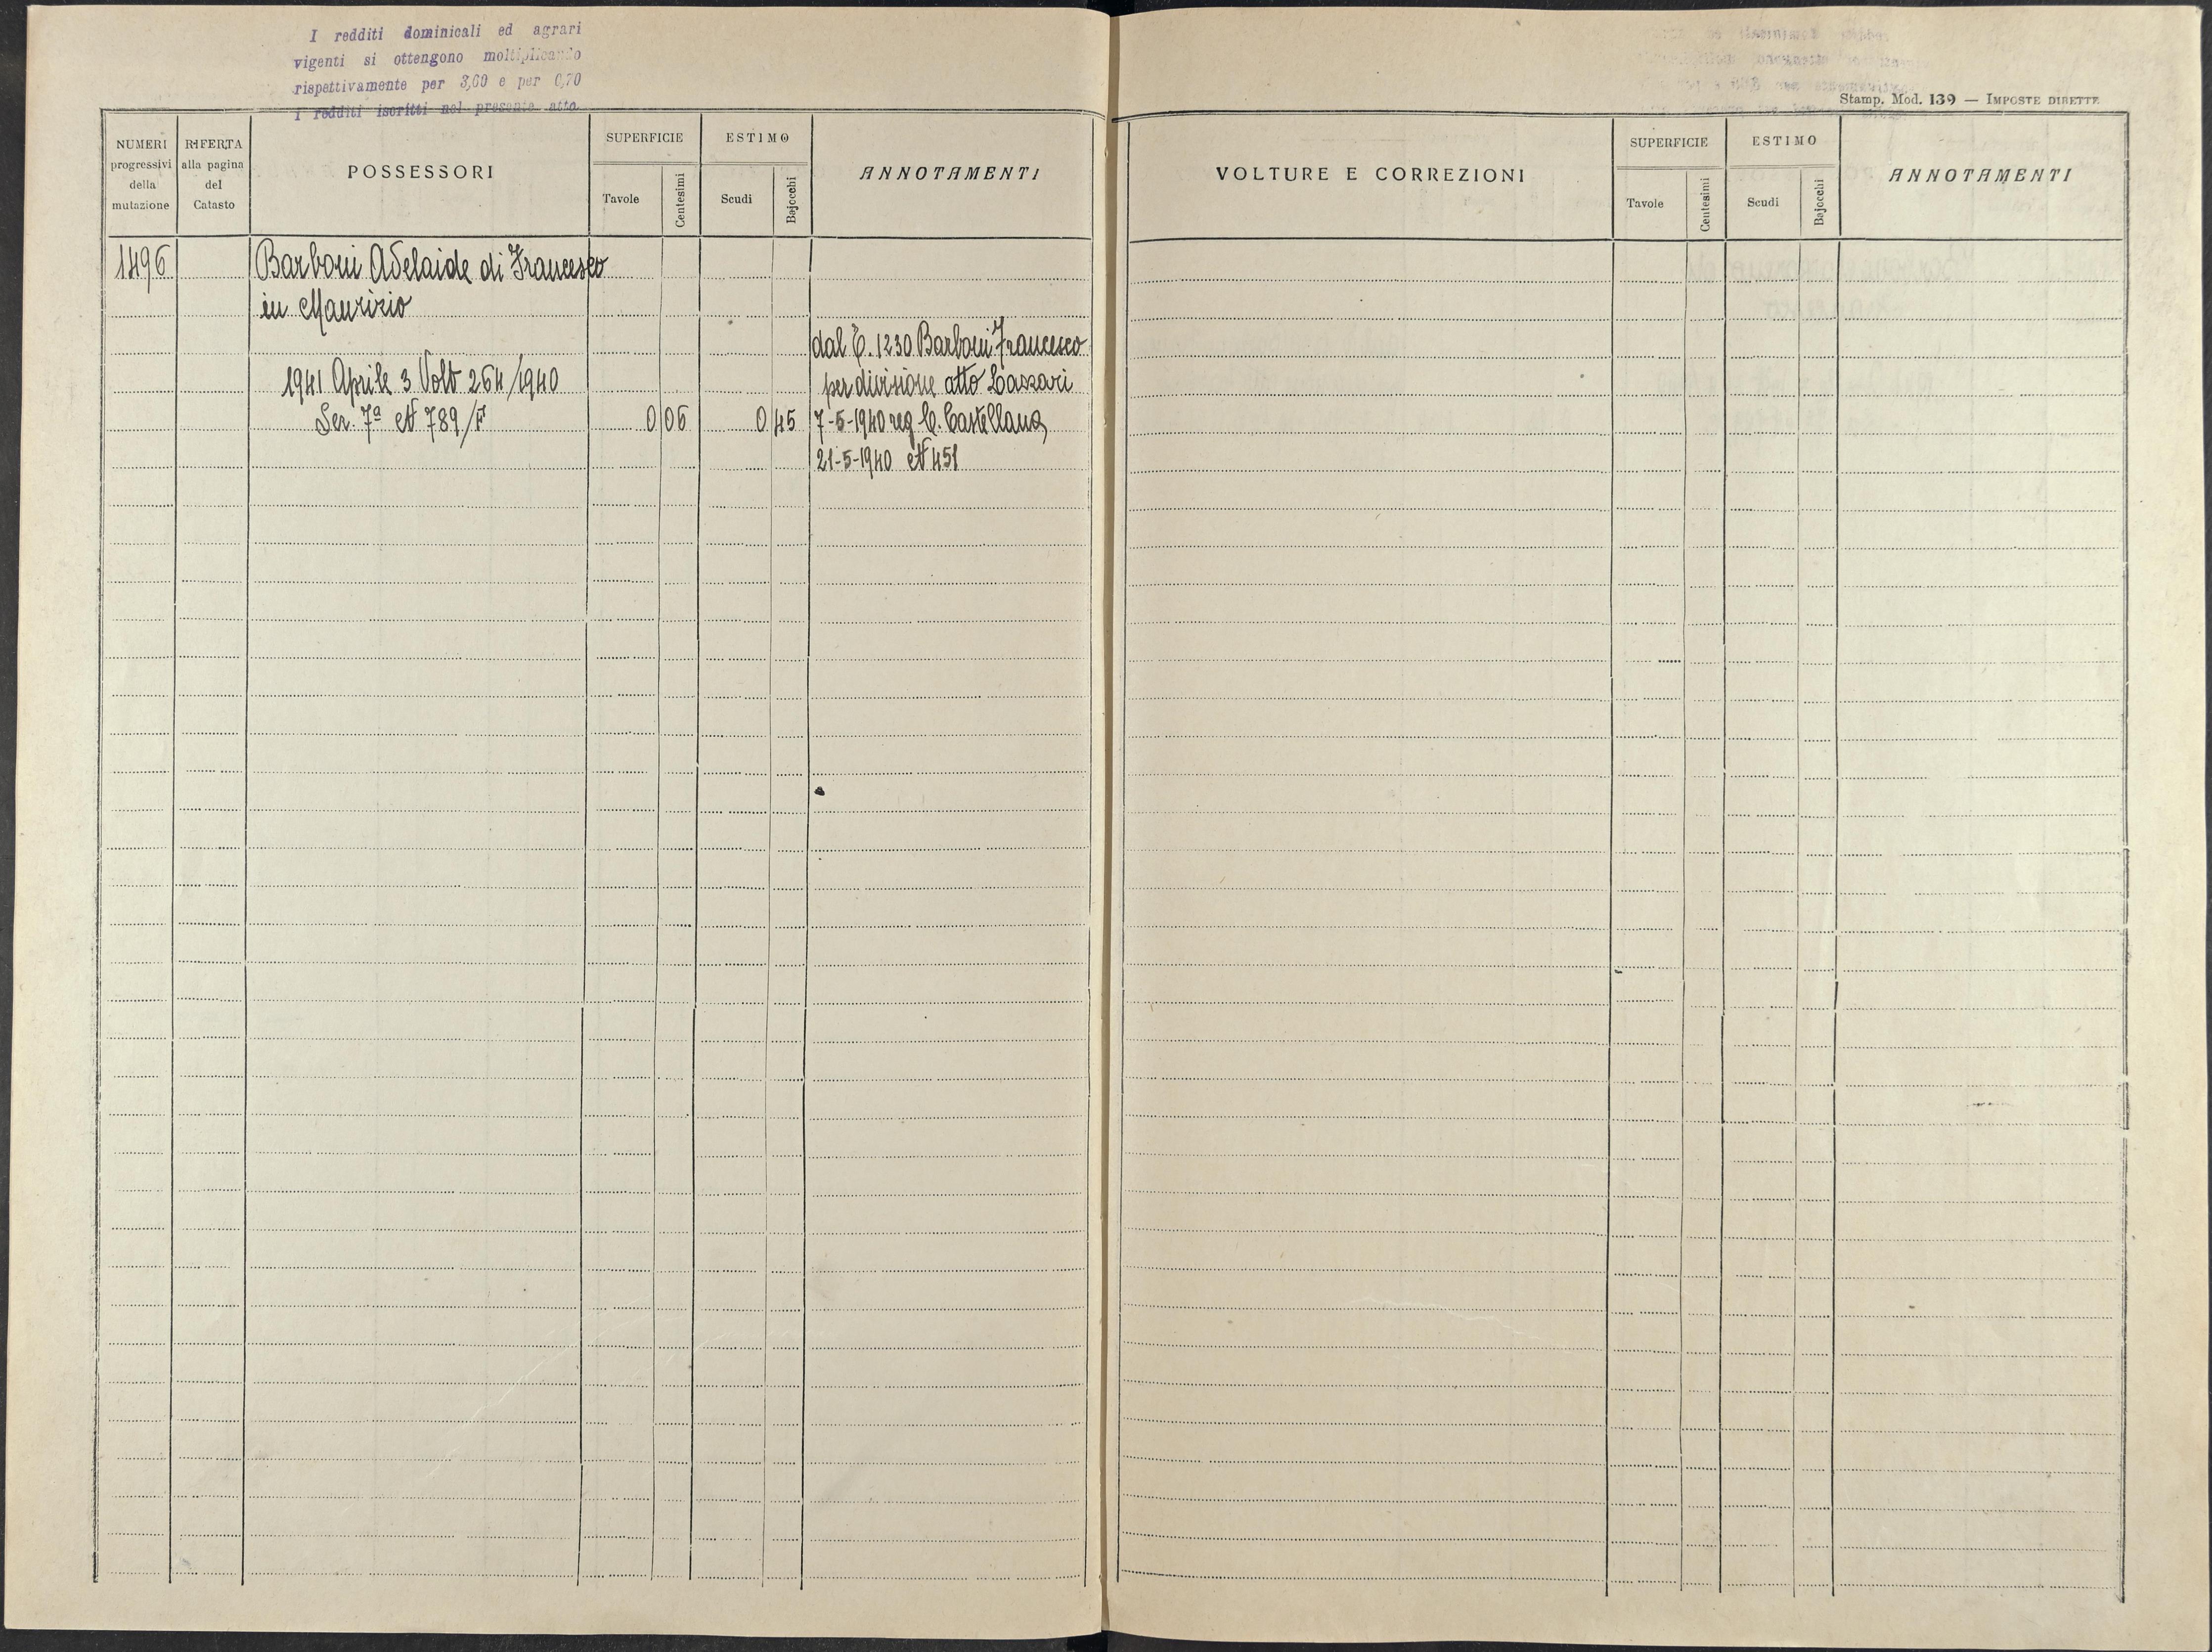 I redditi dominicali ed agrari
vigenti si ottengono moltiplicando
rispettivamente per 3,60 e per 0,70
i redditi iscritti nel presente atto
Stamp. Mod. 139 — IMPOSTE DIRETTE
NUMERI progressivi della mutazione
RIFERTA alla pagina del Catasto
POSSESSORI
SUPERFICIE
Tavole
Centesimi
ESTIMO
Scudi
Bajocchi
ANNOTAMENTI
VOLTURE E CORREZIONI
SUPERFICIE
Tavole
Centesimi
ESTIMO
Scudi
Bajocchi
ANNOTAMENTI
1496 Barboni Adelaide di Francesco
in Maurizio
dal C. 1230 Barboni Francesco
1941 Aprile 3 Volt 264/1940 per divisione atto
Ser. 7ª N 789/F 0 06 0 45 7-5-1940 reg C. Castellana
21-5-1940 N 451